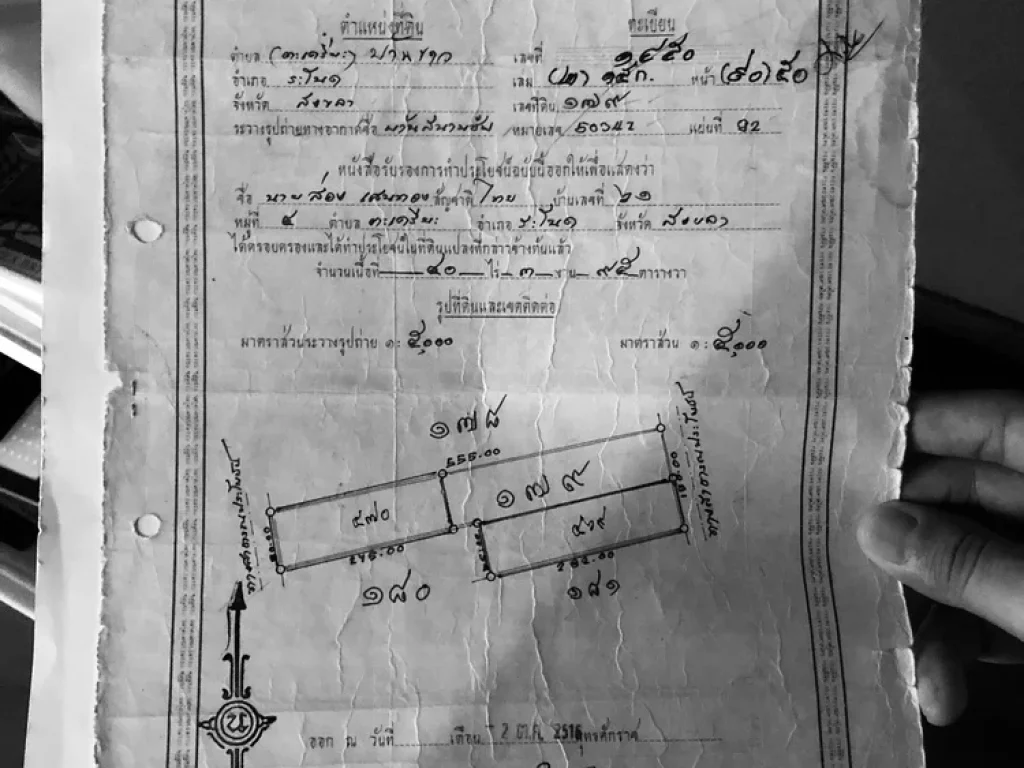 ตำแหน่งที่ดิน ทะเบียน
ตำบล (ตะเครียะ) บ้านขาว เลขที่ ๑๔๕๐
อำเภอ ระโนด เล่ม (๒) ๑๕ก. หน้า (๙๐) ๕๐
จังหวัด สงขลา เลขที่ดิน ๑๗๙
ระวางรูปถ่ายทางอากาศชื่อ หมายเลข 5034Z แผ่นที่ 92
หนังสือรับรองการทำประโยชน์ฉบับนี้ออกให้เพื่อแสดงว่า
ชื่อ นาย สัญชาติ ไทย บ้านเลขที่ ๒๑
หมู่ที่ ๕ ตำบล ตะเครียะ อำเภอ ระโนด จังหวัด สงขลา
ได้ครอบครองและได้ทำประโยชน์ในที่ดินแปลงที่กล่าวข้างต้นแล้ว
จำนวนเนื้อที่ ๕๐ ไร่ ๓ งาน ๙๕ ตารางวา
รูปที่ดินและเขตติดต่อ
มาตราส่วนระวางรูปถ่าย ๑ : ๕,๐๐๐ มาตราส่วน ๑ : ๕,๐๐๐
๑๗๘
555.00
๑๗๙
๕๗๐
๑๘๐
๑๘๑
น
ออก ณ วันที่ เดือน - 2 ต.ค. 2516 พุทธศักราช